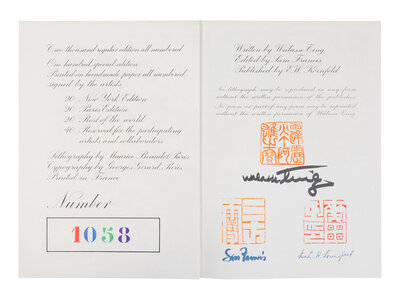 Two thousand regular edition all numbered
One hundred special edition
Printed on handmade paper all numbered
signed by the artists
20 New York Edition
20 Paris Edition
20 Rest of the world
40 Reserved for the participating
artists and collaborators
Lithography by Maurice Beaudet Paris
Typography by Georges Girard Paris
Printed in France
Number
1058
Written by Walasse Ting
Edited by Sam Francis
Published by E.W. Kornfeld
No lithograph may be reproduced in any form
without the written permission of the publisher
No poem or part of any poem may be reprinted
without the written permission of Walasse Ting
walasse Ting
Sam Francis